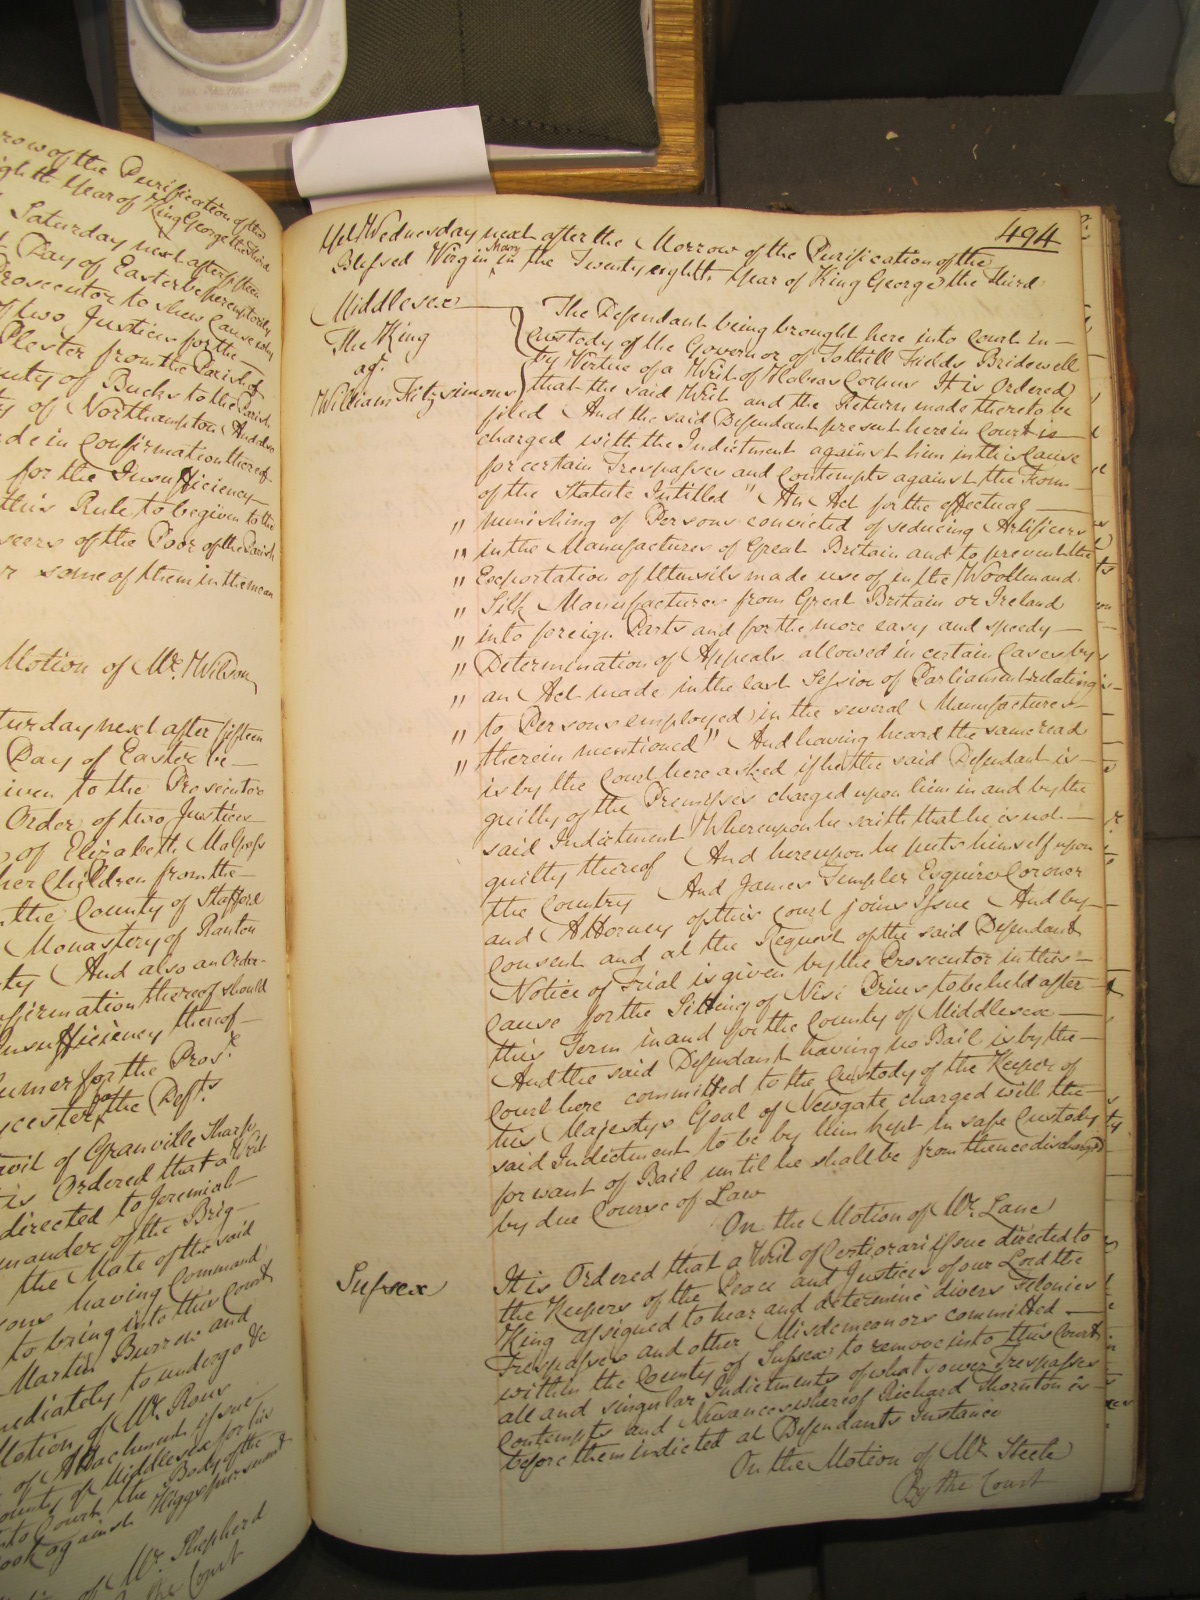 row of the Purification of the
ighth Year of King George the Third
Saturday next after fifteen
Day of Easter be peremptorily
Prosecutor to shew Cause why
of two Justices for the
Plester from the Parish of
unty of Bucks to the Parish
ty of Northampton And also
ade in Confirmation thereof
for the Insufficiency
this Rule to be given to the
seers of the Poor of the Parish
or some of them in the mean
Motion of Mr. Wilson
turday next after fifteen
Day of Easter be
iven to the Prosecutor
Order of two Justices
of Elizabeth
her Children from the
the County of Stafford
Monastery of Ranton
ty And also an Order
nfirmation thereof should
Insufficiency thereof
for the Pros.r
for the Def.ts
avit of Granville Sharp
is Ordered that a Writ
directed to Jeremiah
mander of the Brig
the Mate of the said
sons having Command
to bring into this Court
Martin Burrow and
mediately to undergo &c
Motion of Mr. Rous
of Attachment issue
ounty of Middlesex for his
into Court the Body of the
ook against Higgs pursuant
of Mr. Shepherd
the Court
494
Yet Wednesday next after the Morrow of the Purification of the
Blessed Virgin Mary in the Twenty eighth Year of King George the Third
Middlesex
The King
agt.
William Fitzsimons
The Defendant being brought here into Court in
Custody of the Governor of Tothill Fields Bridewell
by Virtue of a Writ of Habeas Corpus It is Ordered
that the said Writ and the Return made thereto be
filed And the said Defendant present here in Court is
charged with the Indictment against him in this Cause
for certain Trespasses and Contempts against the Form
of the Statute Intitled " An Act for the effectual
" punishing of Persons convicted of seducing Artificers
" in the Manufactures of Great Britain and to prevent the
" Exportation of Utensils made use of in the Woollen and
" Silk Manufactures from Great Britain or Ireland
" into foreign Parts and for the more easy and speedy
" Determination of Appeals allowed in certain Cases by
" an Act made in the last Session of Parliament relating
" to Persons employed in the several Manufactures
" therein mentioned " And having heard the same read
is by the Court here asked if he the said Defendant is
guilty of the Premisses charged upon him in and by the
said Indictment Whereupon he saith that he is not
guilty thereof And hereupon he puts himself upon
the Country And James Templer Esquire Coroner
and Attorney of this Court joins Issue And by
Consent and at the Request of the said Defendant
Notice of Trial is given by the Prosecutor in this
Cause for the Sitting of Nisi Prius to be held after
this Term in and for the County of Middlesex
And the said Defendant having no Bail is by the
Court here committed to the Custody of the Keeper of
his Majestys Goal of Newgate charged with the
said Indictment to be by him kept in safe Custody
for want of Bail until he shall be from thence discharged
by due Course of Law
On the Motion of Mr. Lane
Sussex
It is Ordered that a Writ of Certiorari issue directed to
the Keepers of the Peace and Justices of our Lord the
King assigned to hear and determine divers Felonies
Trespasses and other Misdemeanors committed
within the County of Sussex to remove into this Court
all and singular Indictments of whatsoever Trespasses
Contempts and Nuisances whereof Richard Thornton is
before them indicted at Defendants Instance
On the Motion of Mr. Steele
By the Court